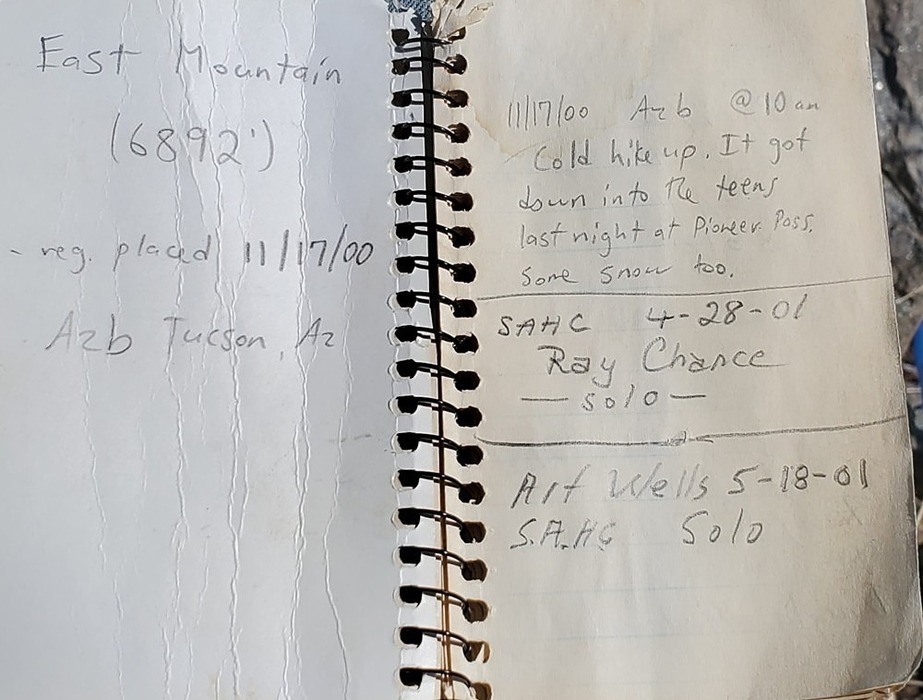 East Mountain
(6892')
- reg. placed 11/17/00
Azb Tucson, Az
11/17/00 Azb @ 10 am
Cold hike up. It got
down into the teens
last night at Pioneer Pass.
Some snow too.
SAHC 4-28-01
Ray Chance
— solo —
Art Wells 5-18-01
S.A.HC Solo